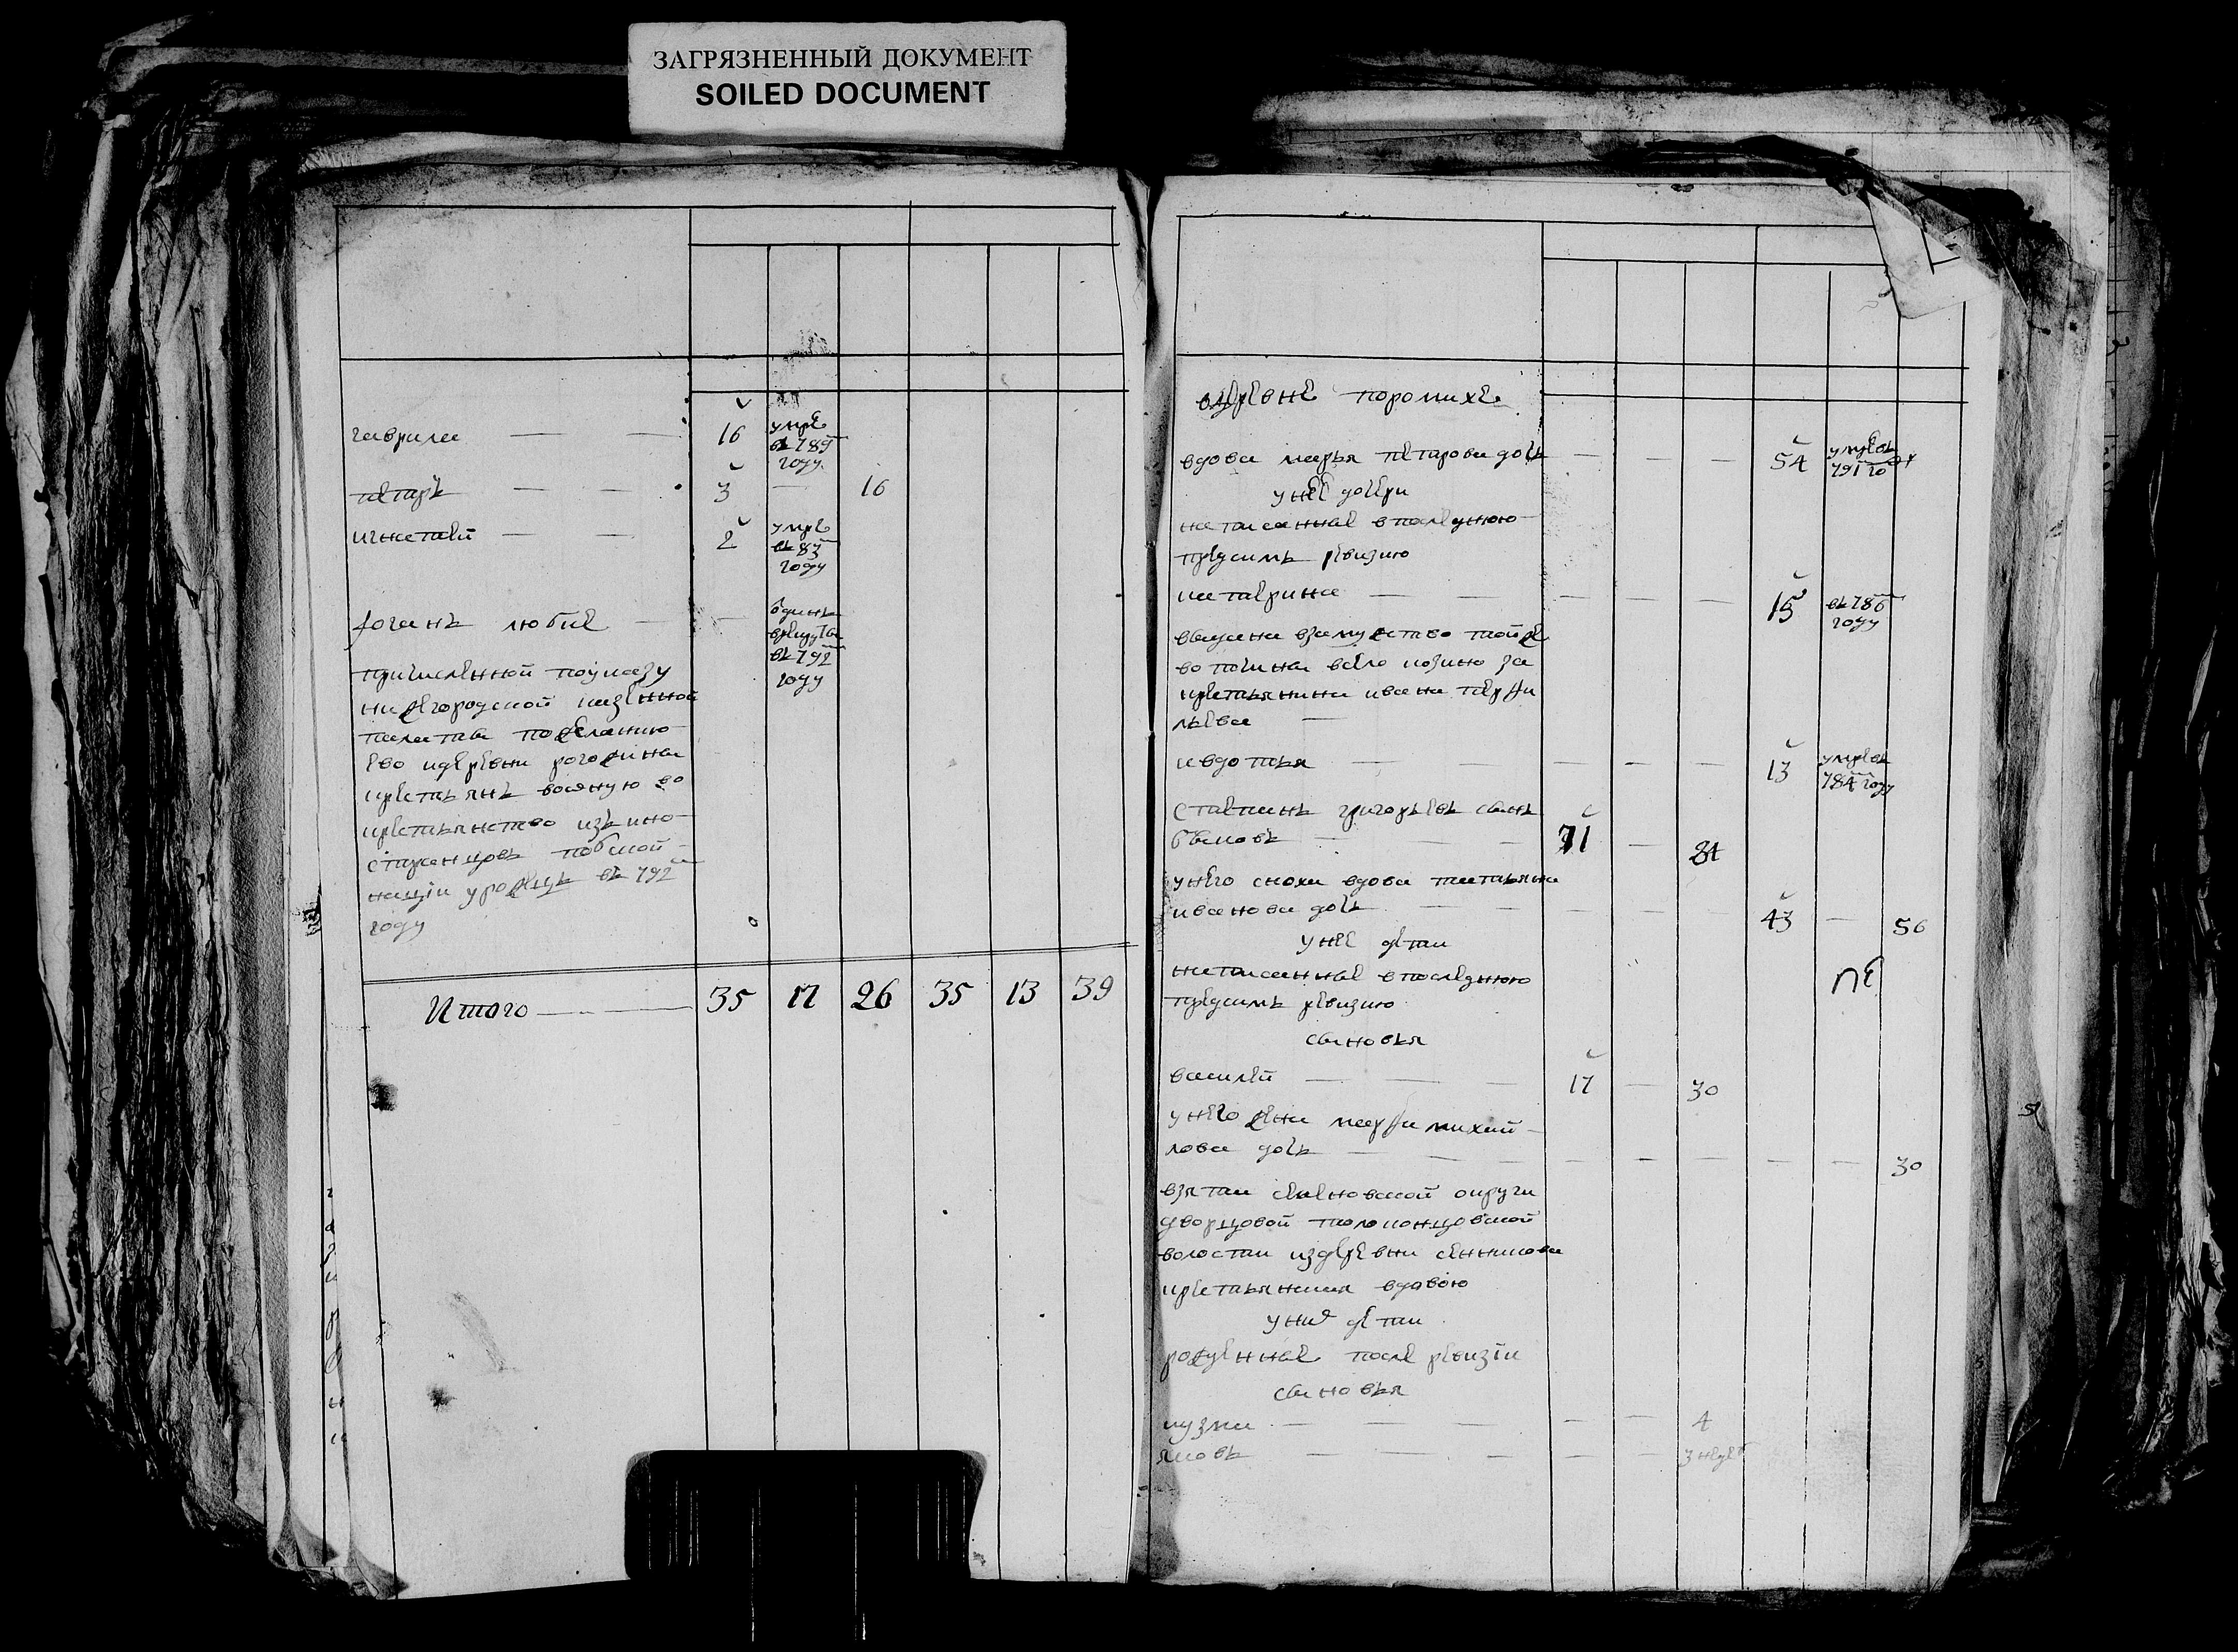 ЗАГРЯЗНЕННЫЙ ДОКУМЕНТ
SOILED DOCUMENT
гаврила — — 16 умре в 789 году
петръ — — 3 — 16
игнатей — — 2 умре в 83 году
юганъ любие — — одинъ в 792 году
причисленной поуказу
нижегородской казенной
палаты пожеланию
ево кдеревни рогожина
крестьянъ во
крестьянство изъ ино
странцовъ полской
нацiи уроженцъ въ 792
году
Итого — — 35 17 26 35 13 39
вдеревне поромихе
вдова марья петрова дочь — — — 54 умре въ 791 году
унее дочери
написанные впоследнюю
предсимъ ревизию
катерина — — — — — 15 въ 786 году
выдана взамужство тойже
вотчины всело козино за
крестьянина ивана перфи
льева —
авдотья — — — — — 13 умре въ 784 году
степанъ григорьевъ сынъ
быковъ — — — 71 — 84
унего сноха вдова татьяна
иванова дочь — — — — — 43 — 56
унее дети
написанные впоследнюю
предсимъ ревизию
сыновья
василей — — — 17 — 30
унего жена марфа михай
лова дочь — — — — — — — — 30
взята семеновской округи
дворцовой толоконцовской
волости издеревни
крестьянская вдовою
уних дети
рожденные после ревизiи
сыновья
кузма — — — — — 4
яковъ — — — — — 3 недель